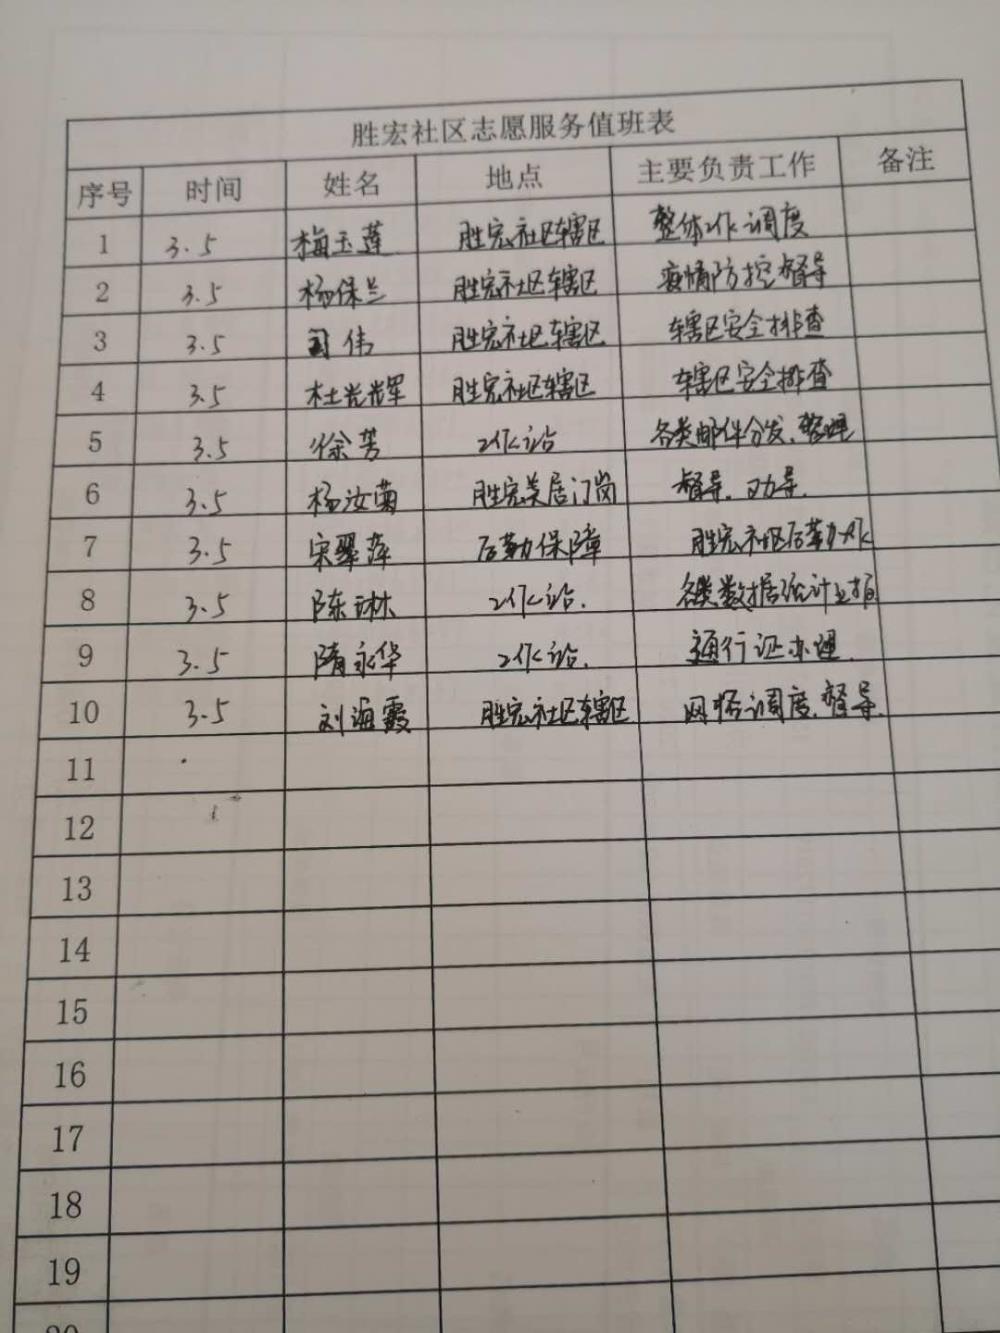 胜宏社区志愿服务值班表
序号 时间 姓名 地点 主要负责工作 备注
1 3.5 梅玉莲 胜宏社区辖区 整体工作调度
2 3.5 杨保兰 胜宏社区辖区 疫情防控督导
3 3.5 闫伟 胜宏社区辖区 辖区安全排查
4 3.5 杜光辉 胜宏社区辖区 辖区安全排查
5 3.5 徐芳 工作站 各类邮件分发、整理
6 3.5 杨汝菊 胜宏美居门岗 督导、劝导.
7 3.5 宋翠萍 后勤保障 胜宏社区后勤工作
8 3.5 陈琳 工作站. 各类数据统计上报
9 3.5 隋永华 工作站. 通行证办理.
10 3.5 刘海霞 胜宏社区辖区 网格调度、督导.
11
12
13
14
15
16
17
18
19